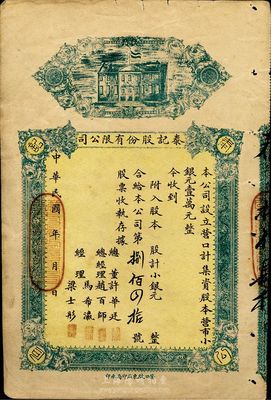 泰記股份有限公司
本公司設立營口計集資股本營市小
銀元壹萬元整
今收到
附入股本 股計小銀元 整
合給本公司第捌佰四拾 號
股票收執存據
總董許華廷
總經理趙百師
馬希瀛
經理梁士彤
中華民國 年 月 日